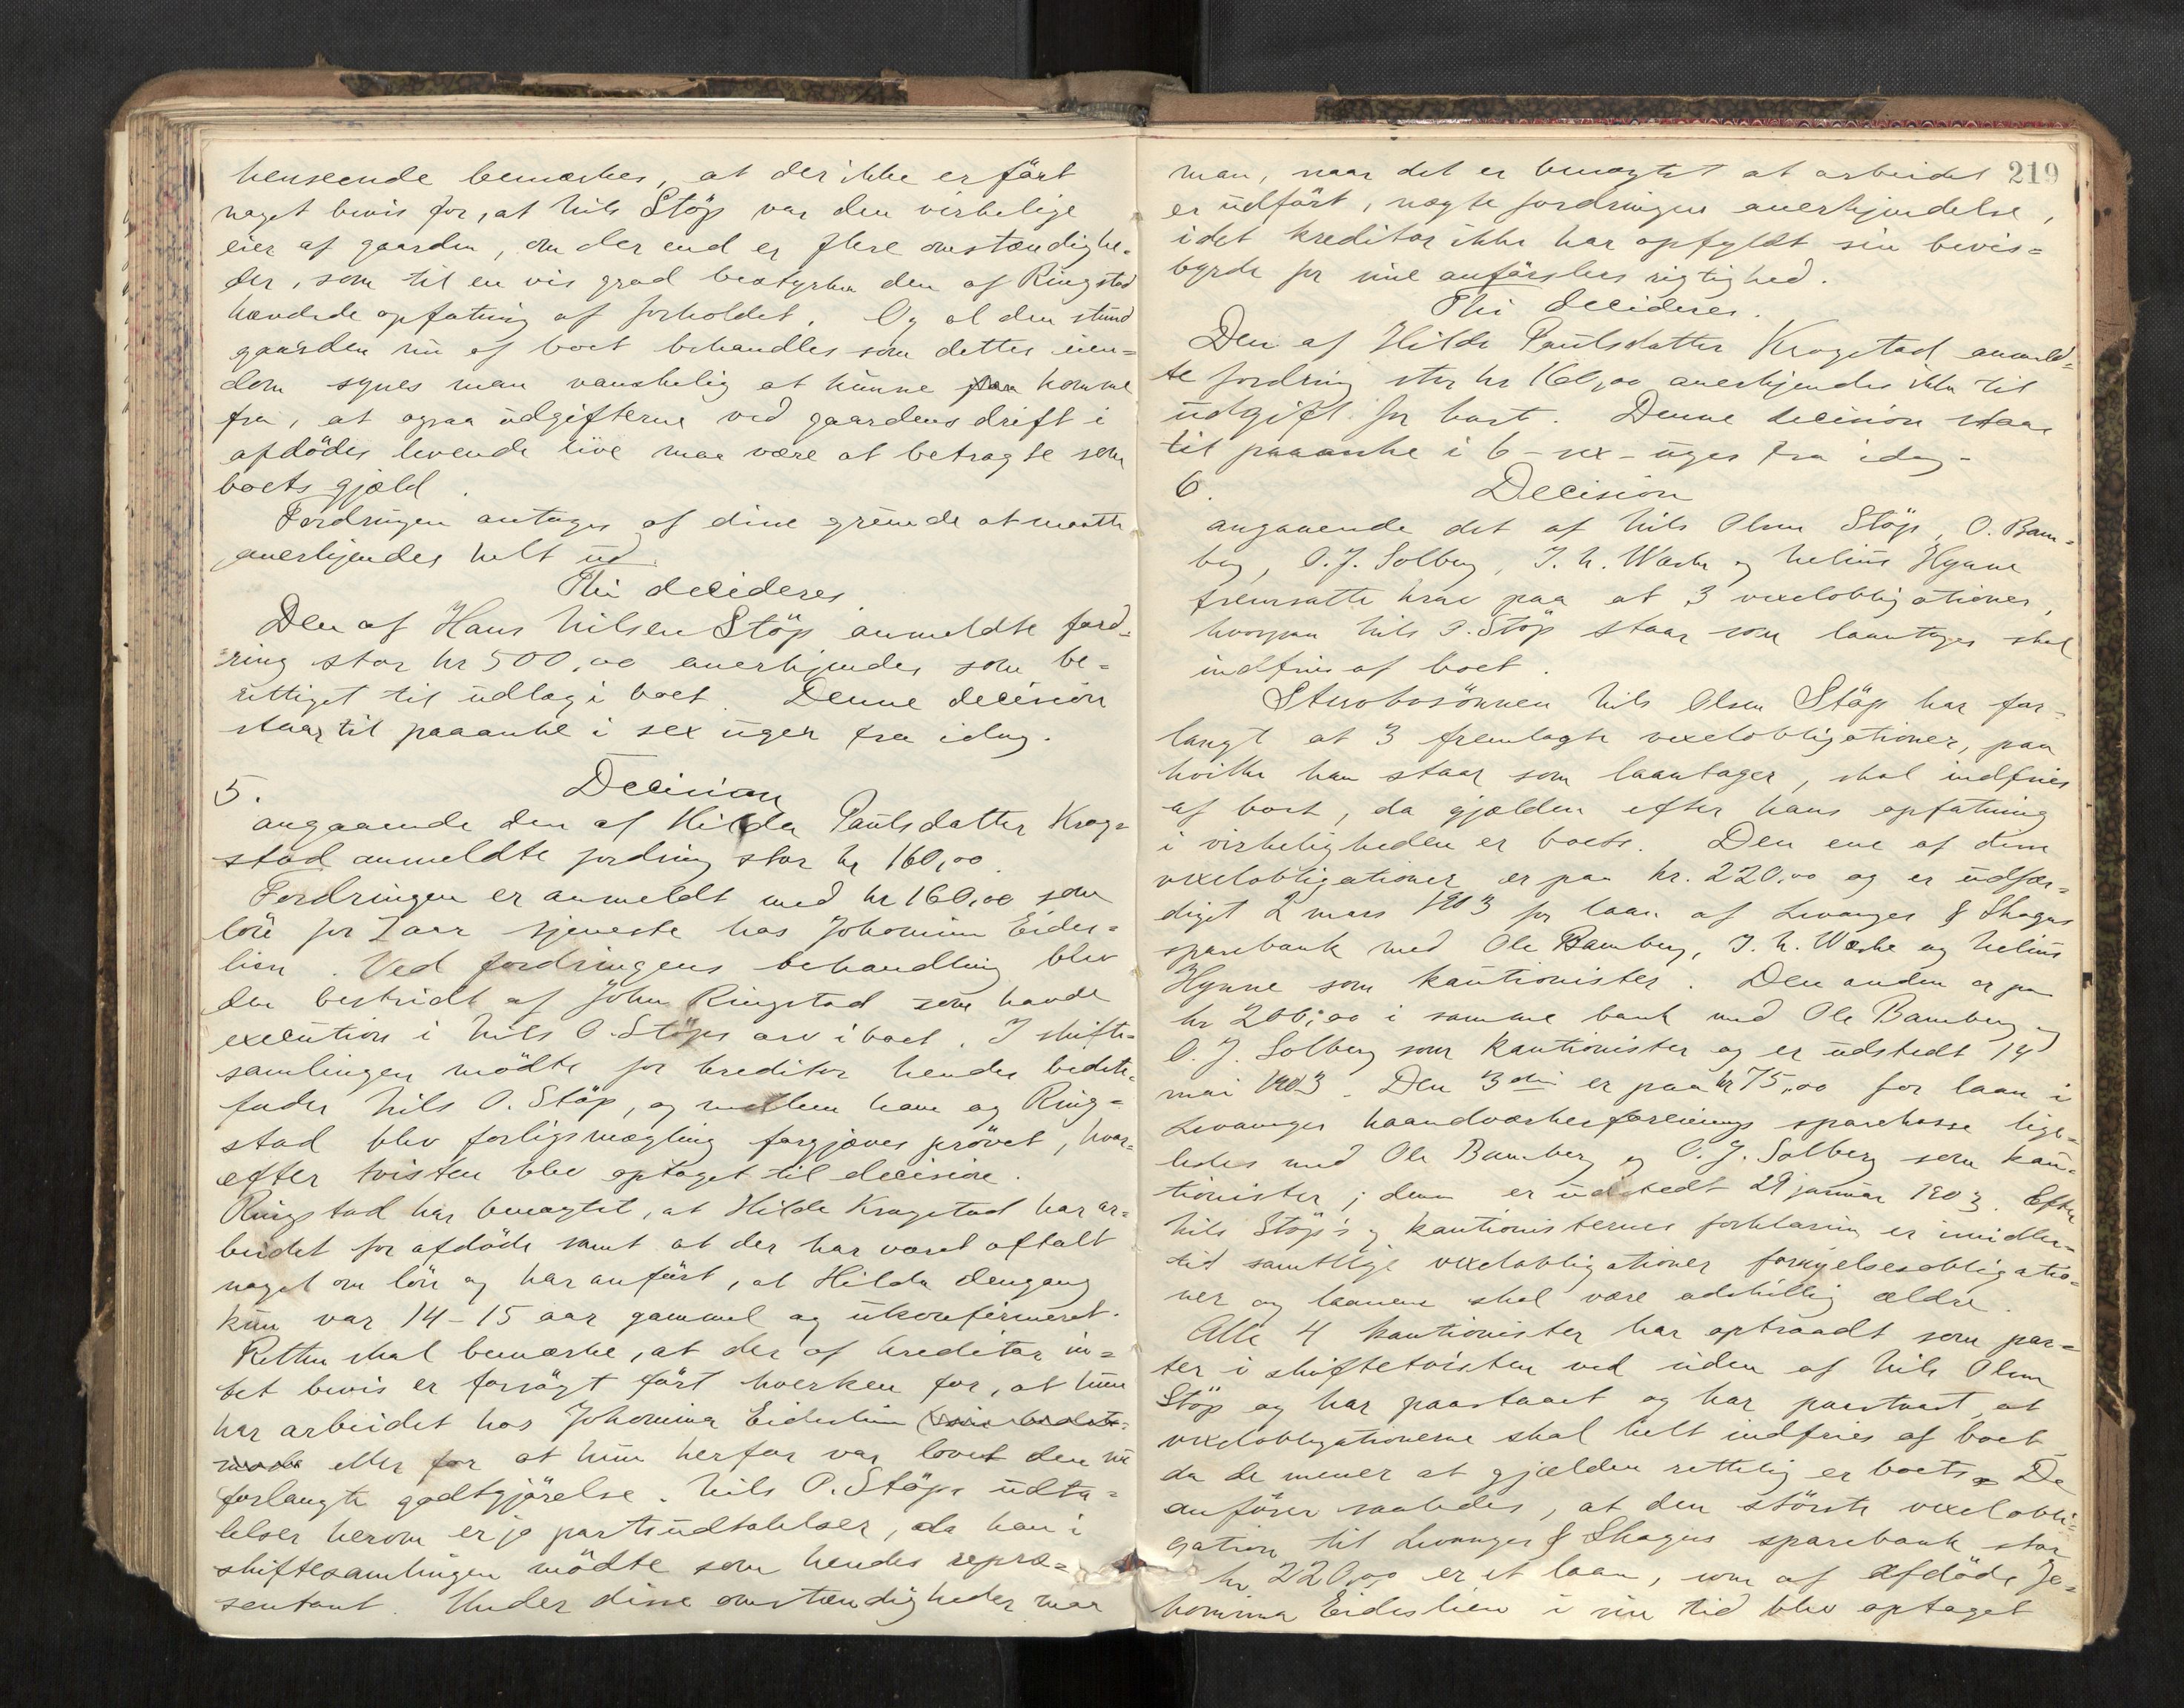 henseende bemærkes, at der ikke er fört
noget bevis for, at Nils Stöp var den virkelige
eier af gaarden, om der end er flere omstændighe-
der, som til en vis grad bestyrker den af Ringstad
hævdede opfatning af forholdet. Og al den stund
gaarden nu af boet behandles som dettes eien-
dom synes man vanskelig at kunne komme
fra, at ogsaa udgifterne ved gaardens drift i
afdödes levende live maa være at betragte som
boets gjæld.
Fordringen antages af disse grunde at maatte
anerkjendes helt ud.
Thi decideres
Den af Hans Nilsen Stöp anmeldte ford-
ring stor kr 500,00 anerkjendes som be-
rettiget til udlæg i boet. Denne decision
staar til paaanke i sex uger fra idag.
5. Decision
angaaende den af Hilda Paulsdatter Krog-
stad anmeldte fordring stor kr 160,00.
Fordringen er anmeldt med kr 160,00 som
lön for 2 aar tjeneste hos Johanna Eides-
lien. Ved fordringens behandling blev
den bestridt af John Ringstad som havde
execution i Nils O. Stöps arv i boet. I skifte-
samlingen mödte for kreditor hendes bedste-
fader Nils O. Stöp, og mellem ham og Ring-
stad blev forligsmægling forgjæves prövet, hvor-
efter tvisten blev optaget til decision.
Ringstad har benægtet, at Hilda Krogstad har ar-
beidet for afdöde samt at der har været aftalt
noget om lön og har anfört, at Hilda dengang
kun var 14-15 aar gammel og ukonfirmeret.
Retten skal bemærke, at der af kreditor in-
tet bevis er forsögt fört hverken for, at hun
har arbeidet hos Johanna Eideslien (sin bedste-
moder eller for at hun herfor var lovet den nu
forlangte godtgjörelse. Nils O. Stöps udta-
lelser herom er jo partsudtalelser, da han i
skiftesamlingen mödte som hendes repræ-
sentant. Under disse omstændigheder maa
219
man, naar det er benægtet at arbeidet
er udfört, nægte fordringen anerkjendelse,
idet kreditor ikke har opfyldt sin bevis-
byrde for sine anförslers rigtighed.
Thi decideres.
Den af Hilda Paulsdatter Krogstad anmeld-
te fordring stor kr 160,00 anerkjendes ikke til
udgift for boet. Denne decision staar
til paaanke i 6 - sex - uger fra idag.
6. Decision
angaaende det af Nils Olsen Stöp, O. Bam-
berg, O. J. Solberg, J. N. Wæske og Nelius Hynne
fremsatte krav paa at 3 vexelobligationer,
hvorpaa Nils O. Stöp staar som laantager skal
indfries af boet.
Sterbosönnen Nils Olsen Stöp har for-
langt at 3 fremlagte vexelobligationer, paa
hvilke han staar som laantager, skal indfries
af boet, da gjælden efter hans opfatning
i virkeligheden er boets. Den ene af disse
vexelobligationer er paa kr. 220,00 og er udfær-
diget 2 mars 1903 for laan af Levanger & Skogns
sparebank med Ole Bamberg, J. N. Wæske og Nelius
Hynne som kautionister. Den anden er paa
kr 200,00 i samme bank med Ole Bamberg og
O. J. Solberg som kautionister og er udstedt 14
mai 1903. Den 3die er paa kr 75,00 for laan i
Levanger haandværkerforenings sparekasse lige-
ledes med Ole Bamberg og O. J. Solberg som kau-
tionister; denne er udstedt 29 januar 1903. Efter
Nils Stöp's og kautionisternes forklaring er imidler-
tid samtlige vexelobligationer fornyelsesobligatio-
ner og laanene skal være adskillig ældre.
Alle 4 kautionister har optraadt som par-
ter i skiftetvisten ved siden af Nils Olsen
Stöp og har paastaaet og har paastaaet, at
vexelobligationerne skal helt indfries af boet
da de mener at gjælden rettelig er boets. De
anförer saaledes, at den störste vexelobli-
gation til Levanger & Skogns sparebank stor
kr 220,00 er et laan, som af afdöde Jo-
hanna Eideslien i sin tid blev optaget